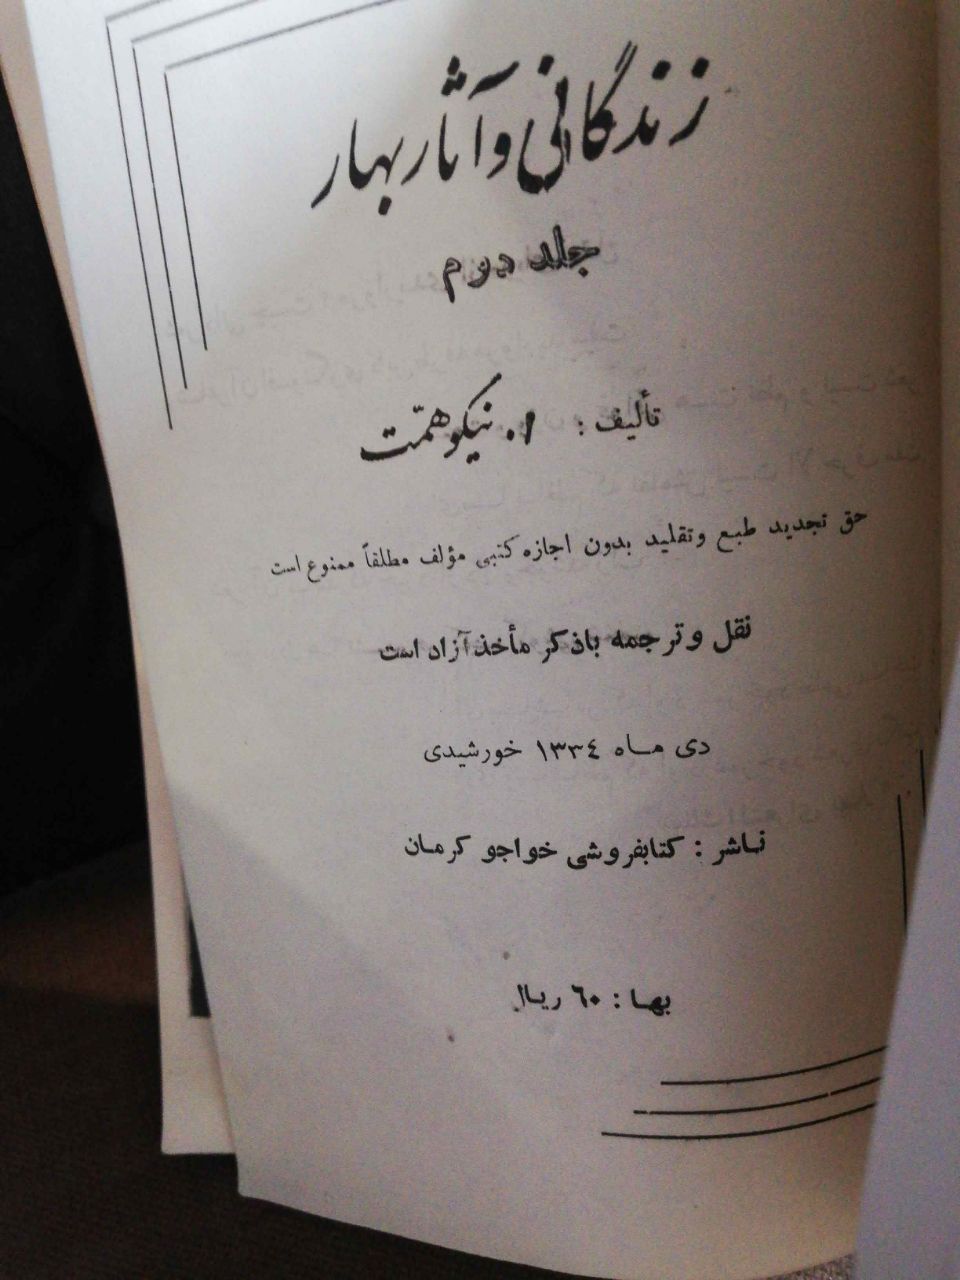 زندگانی و آثار بهار
جلد دوم
تألیف : ا. نیکو همّت
حق تجدید طبع وتقلید بدون اجازه کتبی مؤلف مطلقاً ممنوع است
نقل وترجمه باذکر مأخذ آزاد است
دی مـاه ١٣٣٤ خورشیدی
نـاشر : کتابفروشی خواجو کرمـان
بهـا : ٦٠ ریـال